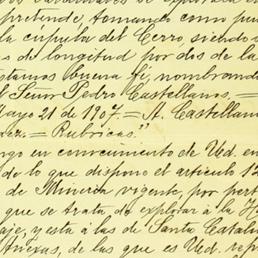 pretende, tomando como pun
la cúpula del Cerro, siendo s
s de longitud por dos de la
stamos buena fe, nombrando
l Señor Pedro Castellanos. =
Mayo 21 de 1907. = A. Castellano
dez. = Rubricas."
ngo en conocimiento de Ud. en
de lo que dispone el artículo 12
de Minería vigente, por pert
que se trata, de explotar á la H
aje, y está á las de Santa Catali
Anexas, de las que es Ud. rep